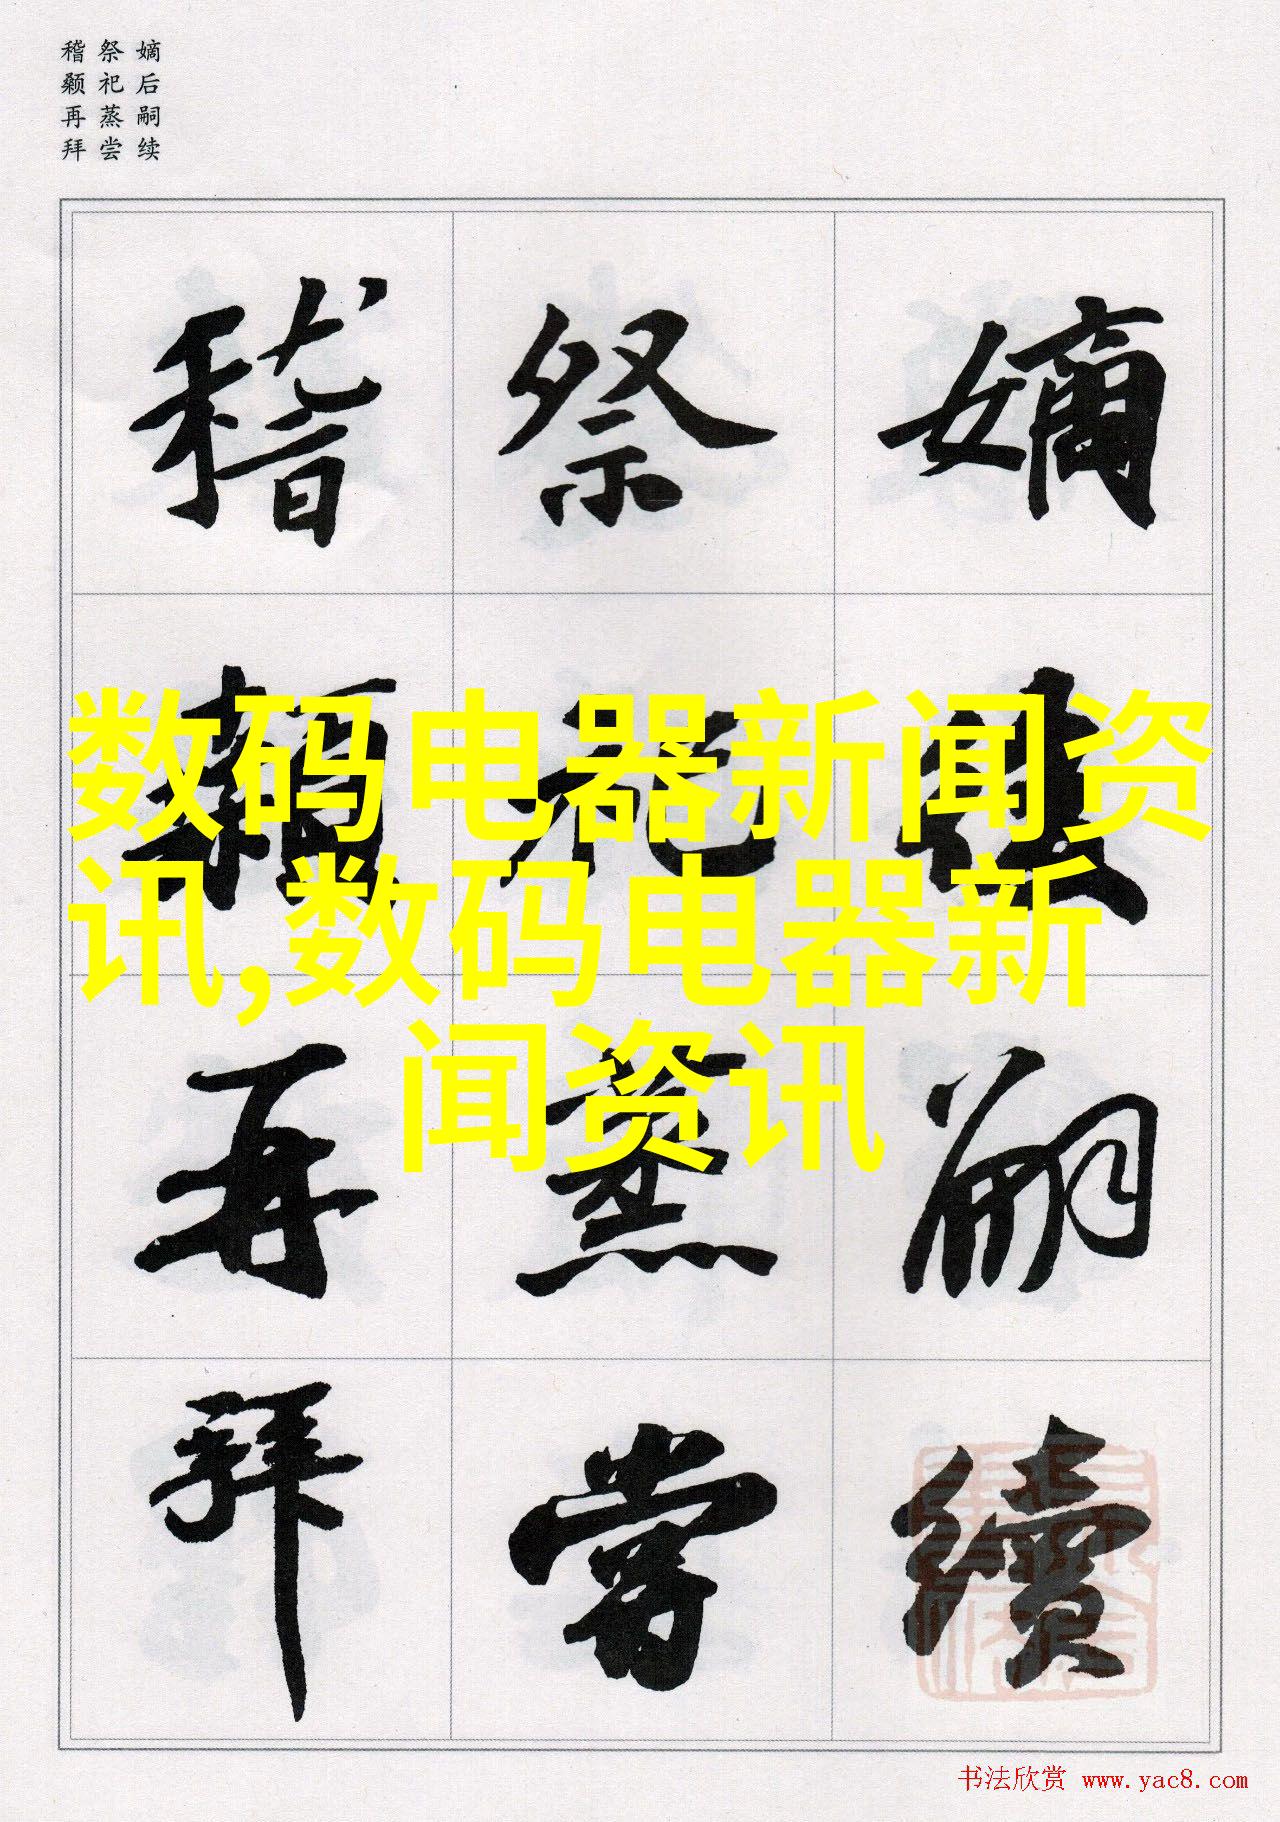 嫡后嗣续
祭祀蒸尝
稽颡再拜
嫡後嗣續
祭祀蒸嘗
稽顙再拜
数码电器新闻资
讯,数码电器新
闻资讯
书法欣赏 www.yac8.com